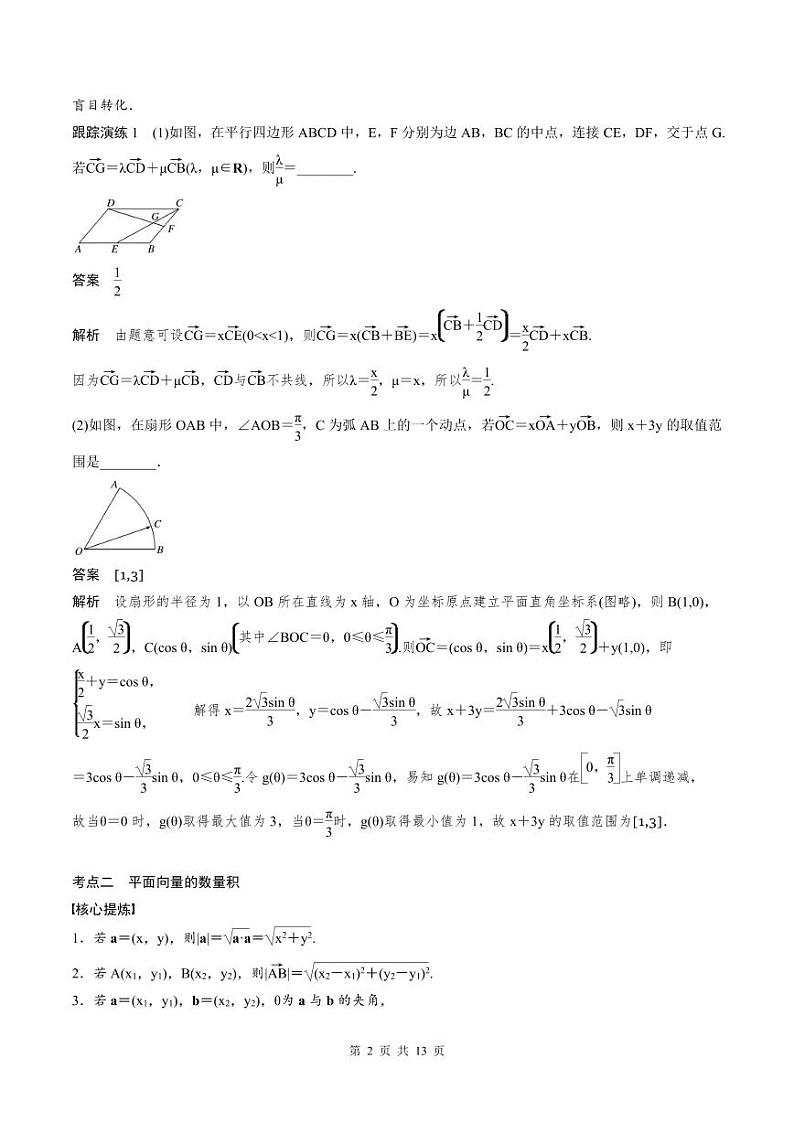 盲目转化．
跟踪演练 1 (1)如图，在平行四边形 ABCD 中，E，F 分别为边 AB，BC 的中点，连接 CE，DF，交于点 G.
若$\overrightarrow{CG}$＝λ$\overrightarrow{CD}$＋μ$\overrightarrow{CB}$(λ，μ∈R)，则$\frac{λ}{μ}$＝________.
D C
G
F
A E B
答案 $\frac{1}{2}$
解析 由题意可设$\overrightarrow{CG}$＝x$\overrightarrow{CE}$(0<x<1)，则$\overrightarrow{CG}$＝x($\overrightarrow{CB}$＋$\overrightarrow{BE}$)＝x($\overrightarrow{CB}$＋$\frac{1}{2}$$\overrightarrow{CD}$)＝$\frac{x}{2}$$\overrightarrow{CD}$＋x$\overrightarrow{CB}$.
因为$\overrightarrow{CG}$＝λ$\overrightarrow{CD}$＋μ$\overrightarrow{CB}$，$\overrightarrow{CD}$与$\overrightarrow{CB}$不共线，所以λ＝$\frac{x}{2}$，μ＝x，所以$\frac{λ}{μ}$＝$\frac{1}{2}$.
(2)如图，在扇形 OAB 中，∠AOB＝$\frac{π}{3}$，C 为弧 AB 上的一个动点，若$\overrightarrow{OC}$＝x$\overrightarrow{OA}$＋y$\overrightarrow{OB}$，则 x＋3y 的取值范
围是________．
A
C
O B
答案 [1,3]
解析 设扇形的半径为 1，以 OB 所在直线为 x 轴，O 为坐标原点建立平面直角坐标系(图略)，则 B(1,0)，
A($\frac{1}{2}$，$\frac{\sqrt{3}}{2}$)，C(cos θ，sin θ)(其中∠BOC＝θ，0≤θ≤$\frac{π}{3}$).则$\overrightarrow{OC}$＝(cos θ，sin θ)＝x($\frac{1}{2}$，$\frac{\sqrt{3}}{2}$)＋y(1,0)，即
$\frac{x}{2}$＋y＝cos θ，
$\frac{\sqrt{3}}{2}$x＝sin θ， 解得 x＝$\frac{2\sqrt{3}sin θ}{3}$，y＝cos θ－$\frac{\sqrt{3}sin θ}{3}$，故 x＋3y＝$\frac{2\sqrt{3}sin θ}{3}$＋3cos θ－$\sqrt{3}$sin θ
＝3cos θ－$\frac{\sqrt{3}}{3}$sin θ，0≤θ≤$\frac{π}{3}$.令 g(θ)＝3cos θ－$\frac{\sqrt{3}}{3}$sin θ，易知 g(θ)＝3cos θ－$\frac{\sqrt{3}}{3}$sin θ在[0，$\frac{π}{3}$]上单调递减，
故当θ＝0 时，g(θ)取得最大值为 3，当θ＝$\frac{π}{3}$时，g(θ)取得最小值为 1，故 x＋3y 的取值范围为[1,3]．
考点二 平面向量的数量积
[核心提炼]
1．若 a＝(x，y)，则|a|＝$\sqrt{a·a}$＝$\sqrt{x^2＋y^2}$.
2．若 A(x₁，y₁)，B(x₂，y₂)，则|$\overrightarrow{AB}$|＝$\sqrt{(x_2－x_1)^2＋(y_2－y_1)^2}$.
3．若 a＝(x₁，y₁)，b＝(x₂，y₂)，θ为 a 与 b 的夹角，
第 2 页 共 13 页